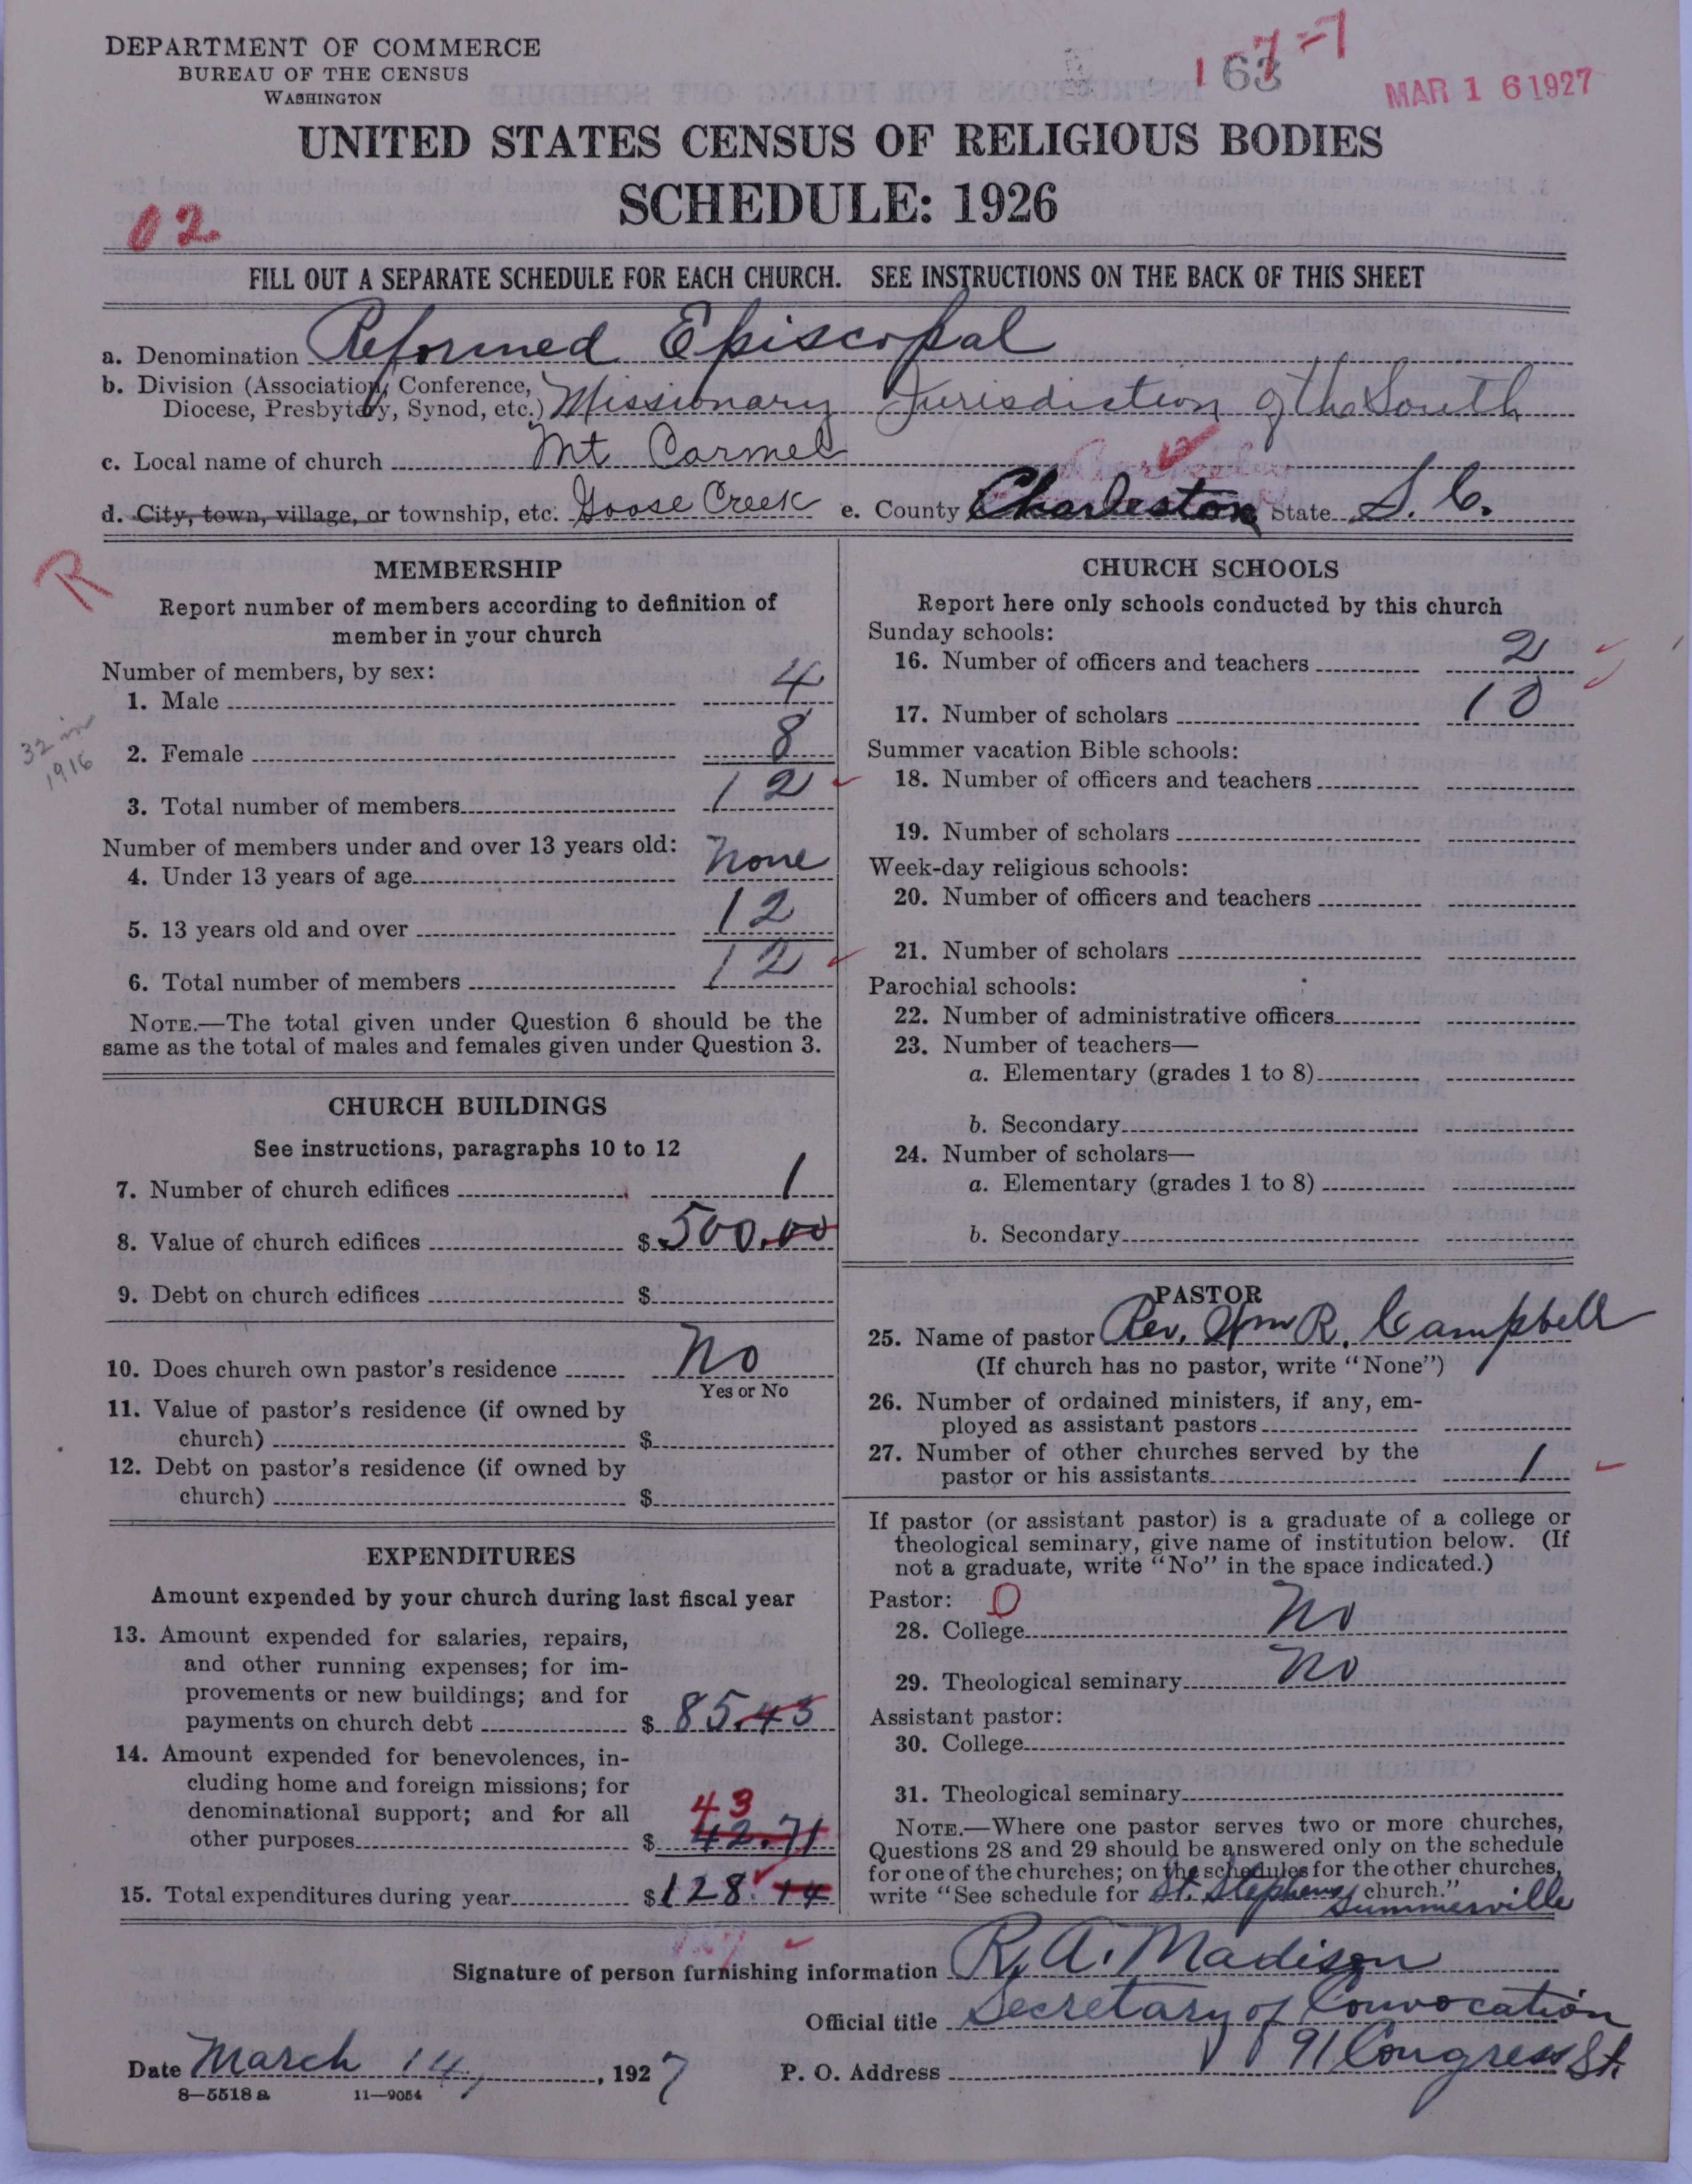 DEPARTMENT OF COMMERCE
BUREAU OF THE CENSUS
WASHINGTON
1 63 7-7
MAR 16 1927
UNITED STATES CENSUS OF RELIGIOUS BODIES
SCHEDULE: 1926
02
FILL OUT A SEPARATE SCHEDULE FOR EACH CHURCH. SEE INSTRUCTIONS ON THE BACK OF THIS SHEET
a. Denomination Reformed Episcopal
b. Division (Association, Conference, Diocese, Presbytery, Synod, etc.) Missionary Jurisdiction of the South
c. Local name of church Mt Carmel
d. City, town, village, or township, etc. Goose Creek e. County Charleston State S. C.
R
MEMBERSHIP
Report number of members according to definition of
member in your church
Number of members, by sex:
1. Male 4
32 in 1916
2. Female 8
3. Total number of members 12
Number of members under and over 13 years old:
4. Under 13 years of age none
5. 13 years old and over 12
6. Total number of members 12
NOTE.—The total given under Question 6 should be the
same as the total of males and females given under Question 3.
CHURCH BUILDINGS
See instructions, paragraphs 10 to 12
7. Number of church edifices 1
8. Value of church edifices $ 500.00
9. Debt on church edifices $
10. Does church own pastor's residence No
Yes or No
11. Value of pastor's residence (if owned by
church) $
12. Debt on pastor's residence (if owned by
church) $
EXPENDITURES
Amount expended by your church during last fiscal year
13. Amount expended for salaries, repairs,
and other running expenses; for im-
provements or new buildings; and for
payments on church debt $ 85.43
14. Amount expended for benevolences, in-
cluding home and foreign missions; for
denominational support; and for all 43
other purposes $ 42.71
15. Total expenditures during year $128.14
CHURCH SCHOOLS
Report here only schools conducted by this church
Sunday schools:
16. Number of officers and teachers 2
17. Number of scholars 10
Summer vacation Bible schools:
18. Number of officers and teachers
19. Number of scholars
Week-day religious schools:
20. Number of officers and teachers
21. Number of scholars
Parochial schools:
22. Number of administrative officers
23. Number of teachers—
a. Elementary (grades 1 to 8)
b. Secondary
24. Number of scholars—
a. Elementary (grades 1 to 8)
b. Secondary
PASTOR
25. Name of pastor Rev. Wm R. Campbell
(If church has no pastor, write "None")
26. Number of ordained ministers, if any, em-
ployed as assistant pastors
27. Number of other churches served by the
pastor or his assistants 1
If pastor (or assistant pastor) is a graduate of a college or
theological seminary, give name of institution below. (If
not a graduate, write "No" in the space indicated.)
Pastor: 0
28. College No
29. Theological seminary No
Assistant pastor:
30. College
31. Theological seminary
NOTE.—Where one pastor serves two or more churches,
Questions 28 and 29 should be answered only on the schedule
for one of the churches; on the schedules for the other churches,
write "See schedule for St. Stephens church."
Summerville
Signature of person furnishing information R. A. Madison
Official title Secretary of Convocation
Date March 14, 1927 P. O. Address 91 Congress St.
8—5518 a 11—9054